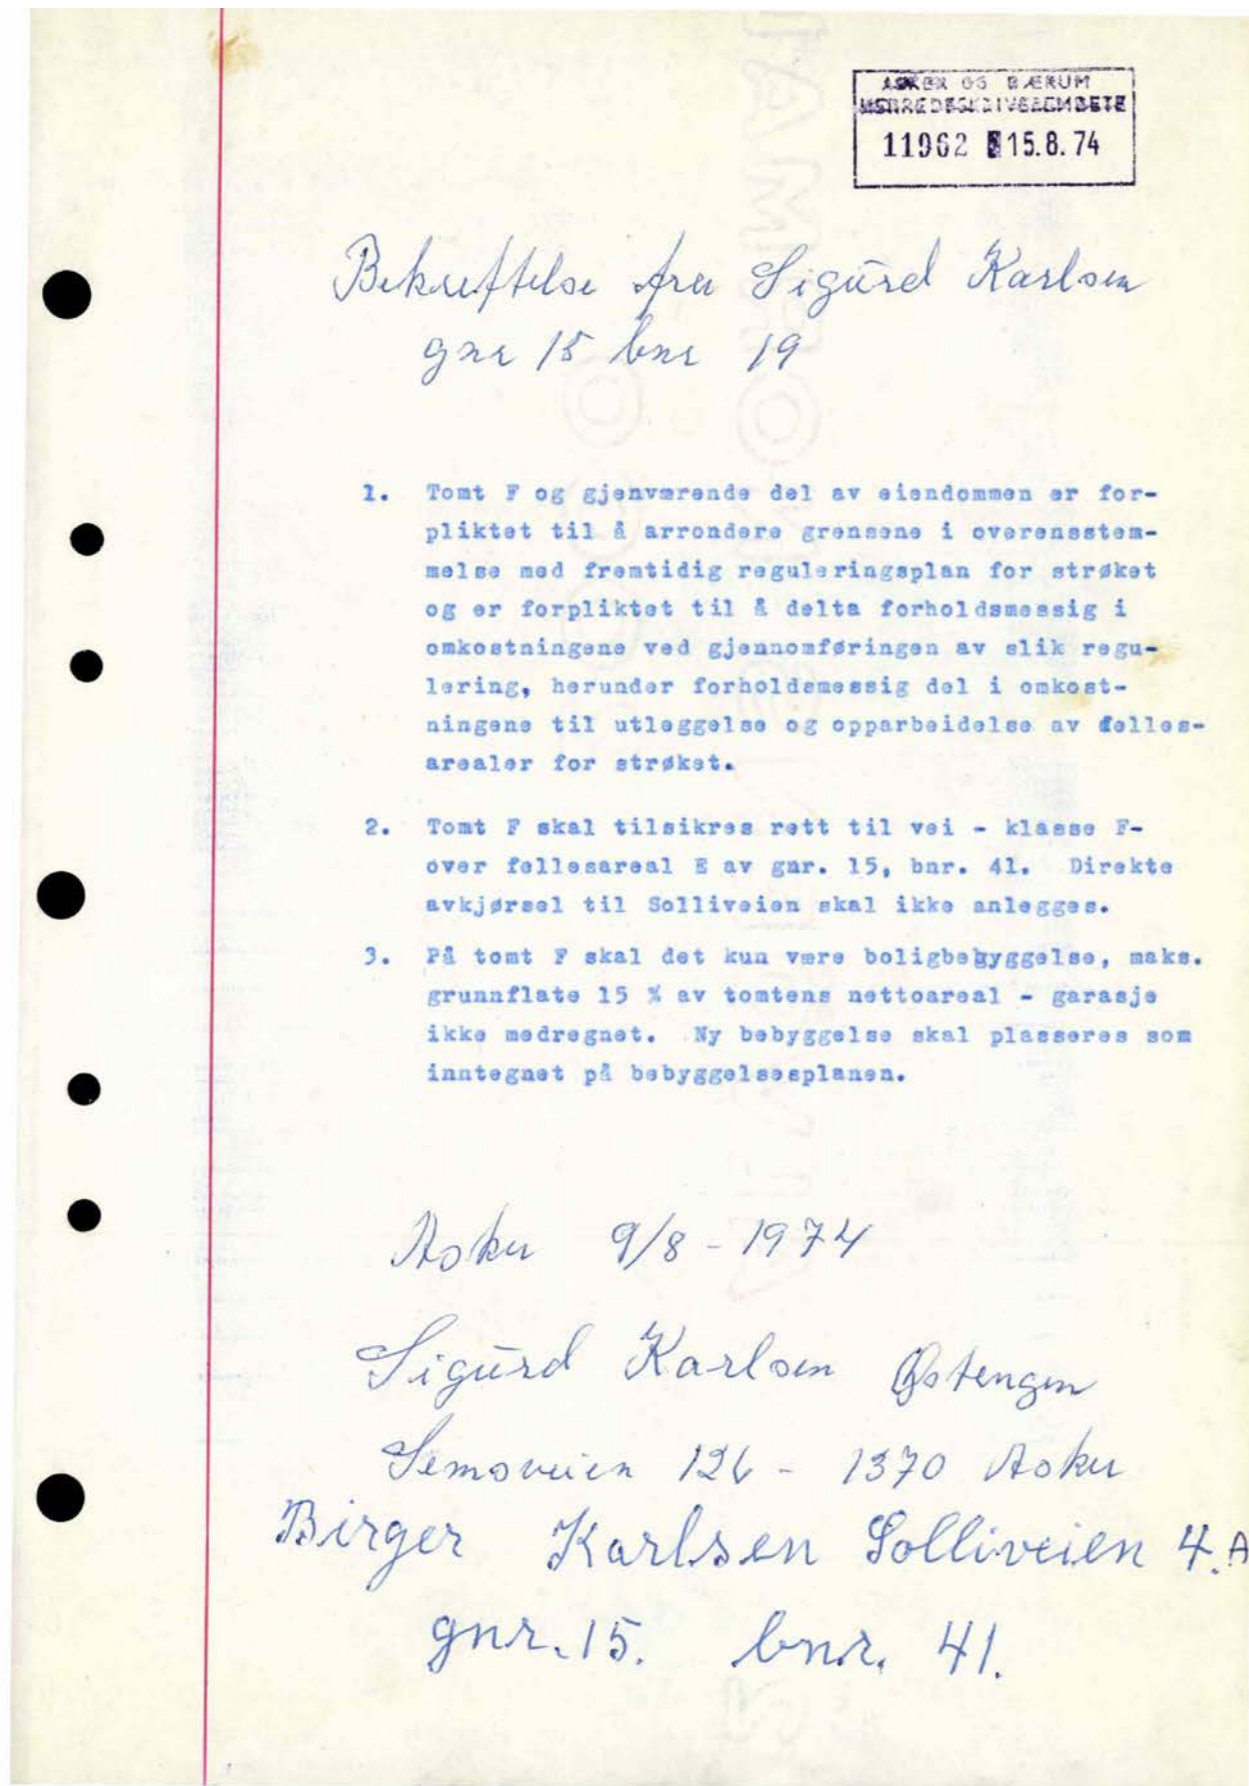 ASKER OG BÆRUM
HERREDSSKRIVEREMBETE
11962 15.8.74
Bekreftelse fra Sigurd Karlsen
gnr 15 bnr 19
1. Tomt F og gjenværende del av eiendommen er for-
pliktet til å arrondere grensene i overensstem-
melse med fremtidig reguleringsplan for strøket
og er forpliktet til å delta forholdsmessig i
omkostningene ved gjennomføringen av slik regu-
lering, herunder forholdsmessig del i omkost-
ningene til utleggelse og opparbeidelse av felles-
arealer for strøket.
2. Tomt F skal tilsikres rett til vei - klasse F-
over fellesareal E av gnr. 15, bnr. 41. Direkte
avkjørsel til Solliveien skal ikke anlegges.
3. På tomt F skal det kun være boligbebyggelse, maks.
grunnflate 15 % av tomtens nettoareal - garasje
ikke medregnet. Ny bebyggelse skal plasseres som
inntegnet på bebyggelsesplanen.
Asker 9/8 - 1974
Sigurd Karlsen Østengen
Semsveien 126 - 1370 Asker
Birger Karlsen Solliveien 4.A
gnr. 15. bnr. 41.